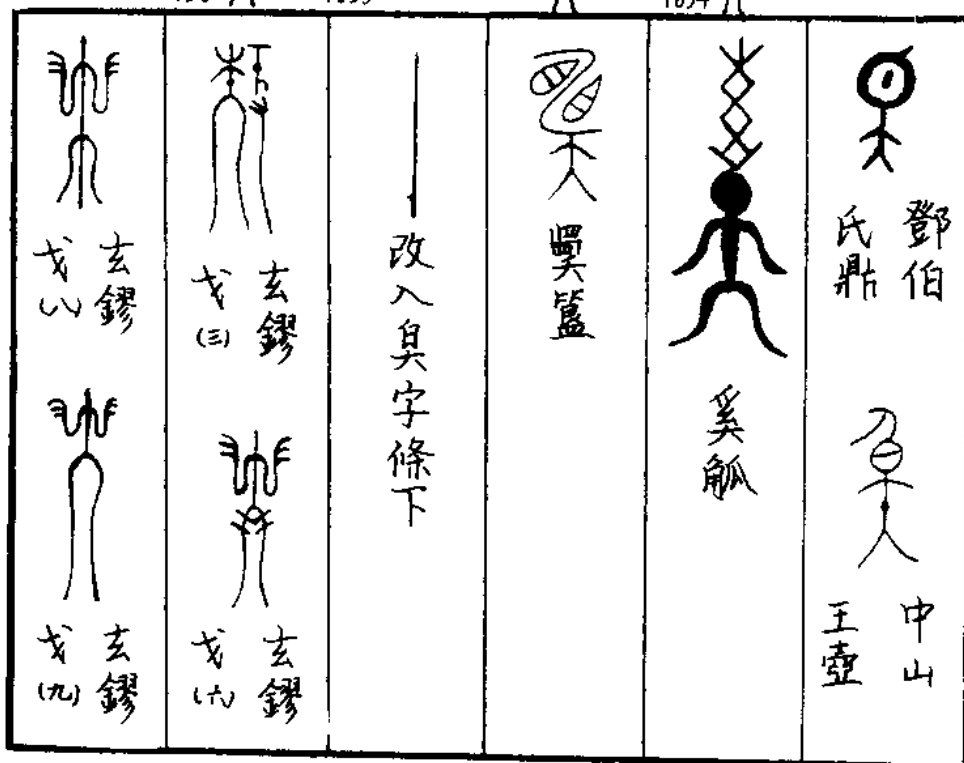 鄧伯
氏鼎
中山
王壺
奚觚
改入昊字條下
玄鏐
戈(三)
玄鏐
戈(六)
玄鏐
戈(八)
玄鏐
戈(九)